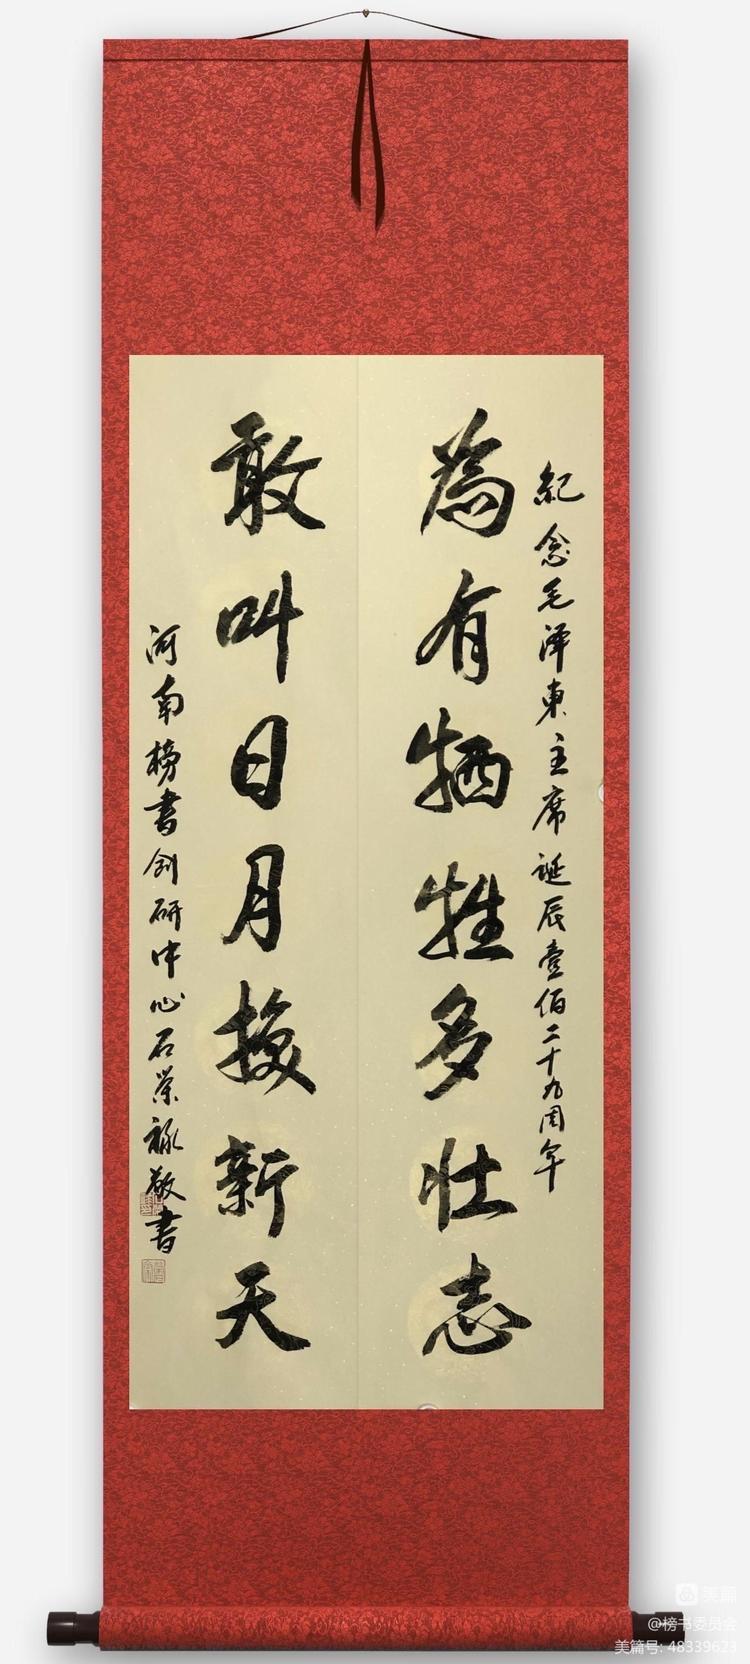 紀念毛泽東主席誕辰壹佰二十九周年
為有牺牲多壮志
敢叫日月换新天
河南榜書创研中心石荣禄敬書
美篇
@榜书委员会
美篇号: 48339623